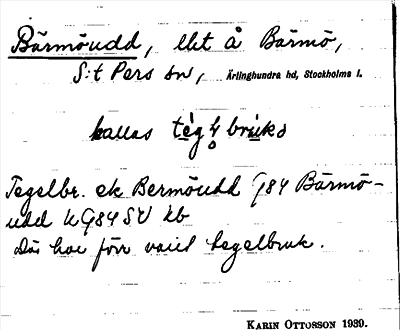 Bärmöudd, llet å Bärmö,
S:t Pers sn, Ärlinghundra hd, Stockholms l.
kallas
Tegelbr. ek Bermöudd G84 Bärmö-
udd k G84 SV kb
Där har förr varit tegelbruk.
KARIN OTTOSSON 1939.